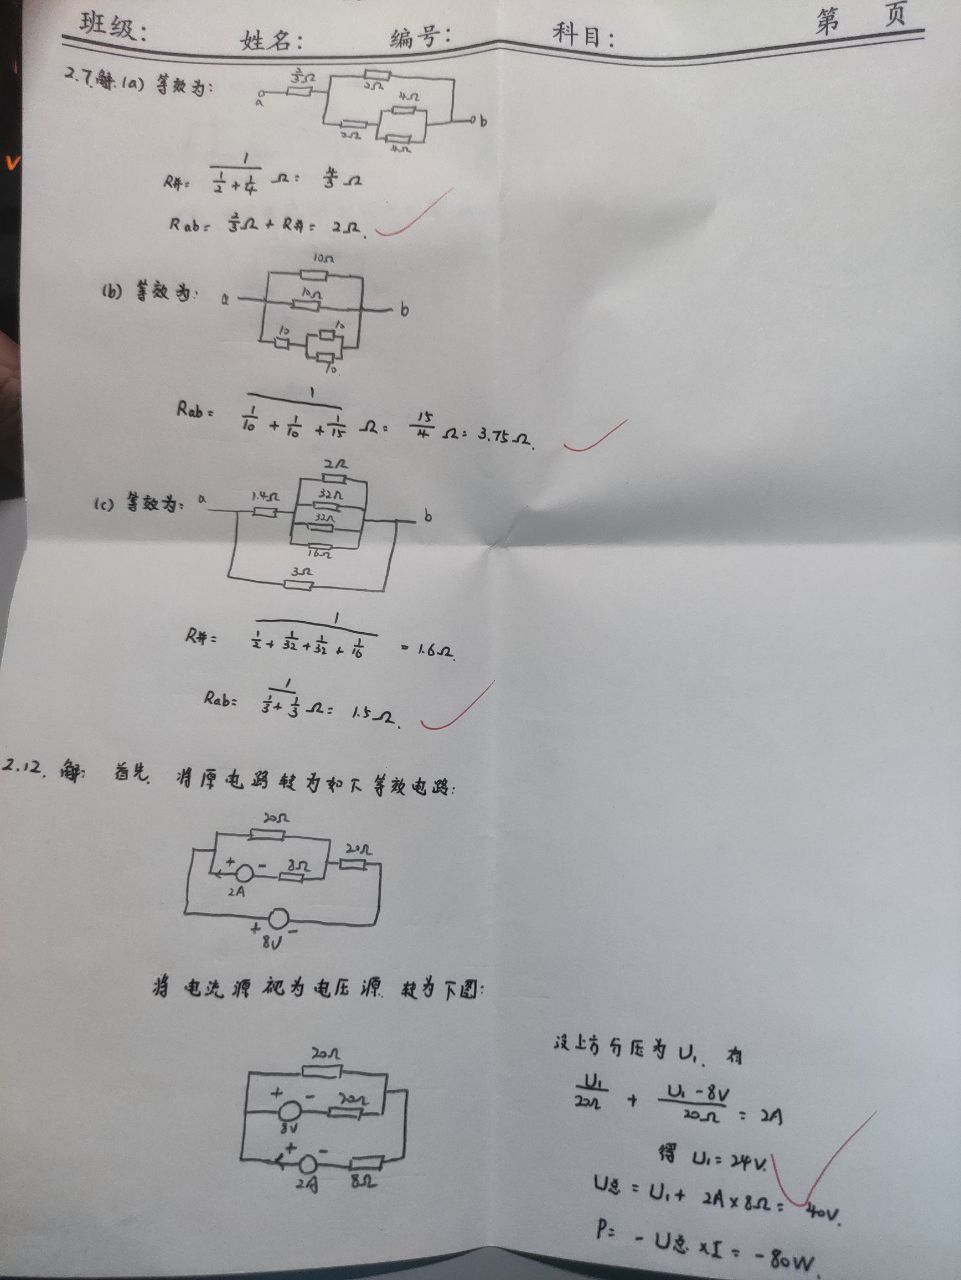 班级: 姓名: 编号: 科目: 第 页
2.7.解.(a) 等效为:
2/3Ω
2Ω
4Ω
a
b
2Ω
4Ω
R并= 1/(1/2+1/4) Ω= 4/3 Ω
Rab= 2/3Ω + R并= 2Ω.
(b) 等效为:
10Ω
a
10Ω
b
10
10
10
Rab= 1/(1/10+1/10+1/15) Ω= 15/4 Ω= 3.75Ω.
(c) 等效为:
2Ω
a
1.4Ω
32Ω
b
32Ω
16Ω
3Ω
R并= 1/(1/2+1/32+1/32+1/16) =1.6Ω.
Rab= 1/(1/3+1/3) Ω= 1.5Ω.
2.12. 解: 首先, 将原电路转为如下等效电路:
20Ω
20Ω
+ -
8Ω
2A
+ -
8V
将电流源视为电压源, 转为下图:
20Ω
+ -
20Ω
8V
+ -
2A
8Ω
设上方分压为U₁, 有
U₁/20Ω + (U₁-8V)/20Ω = 2A
得 U₁=24V.
U总 = U₁+ 2A×8Ω= 40V.
P= -U总×I = -80W.